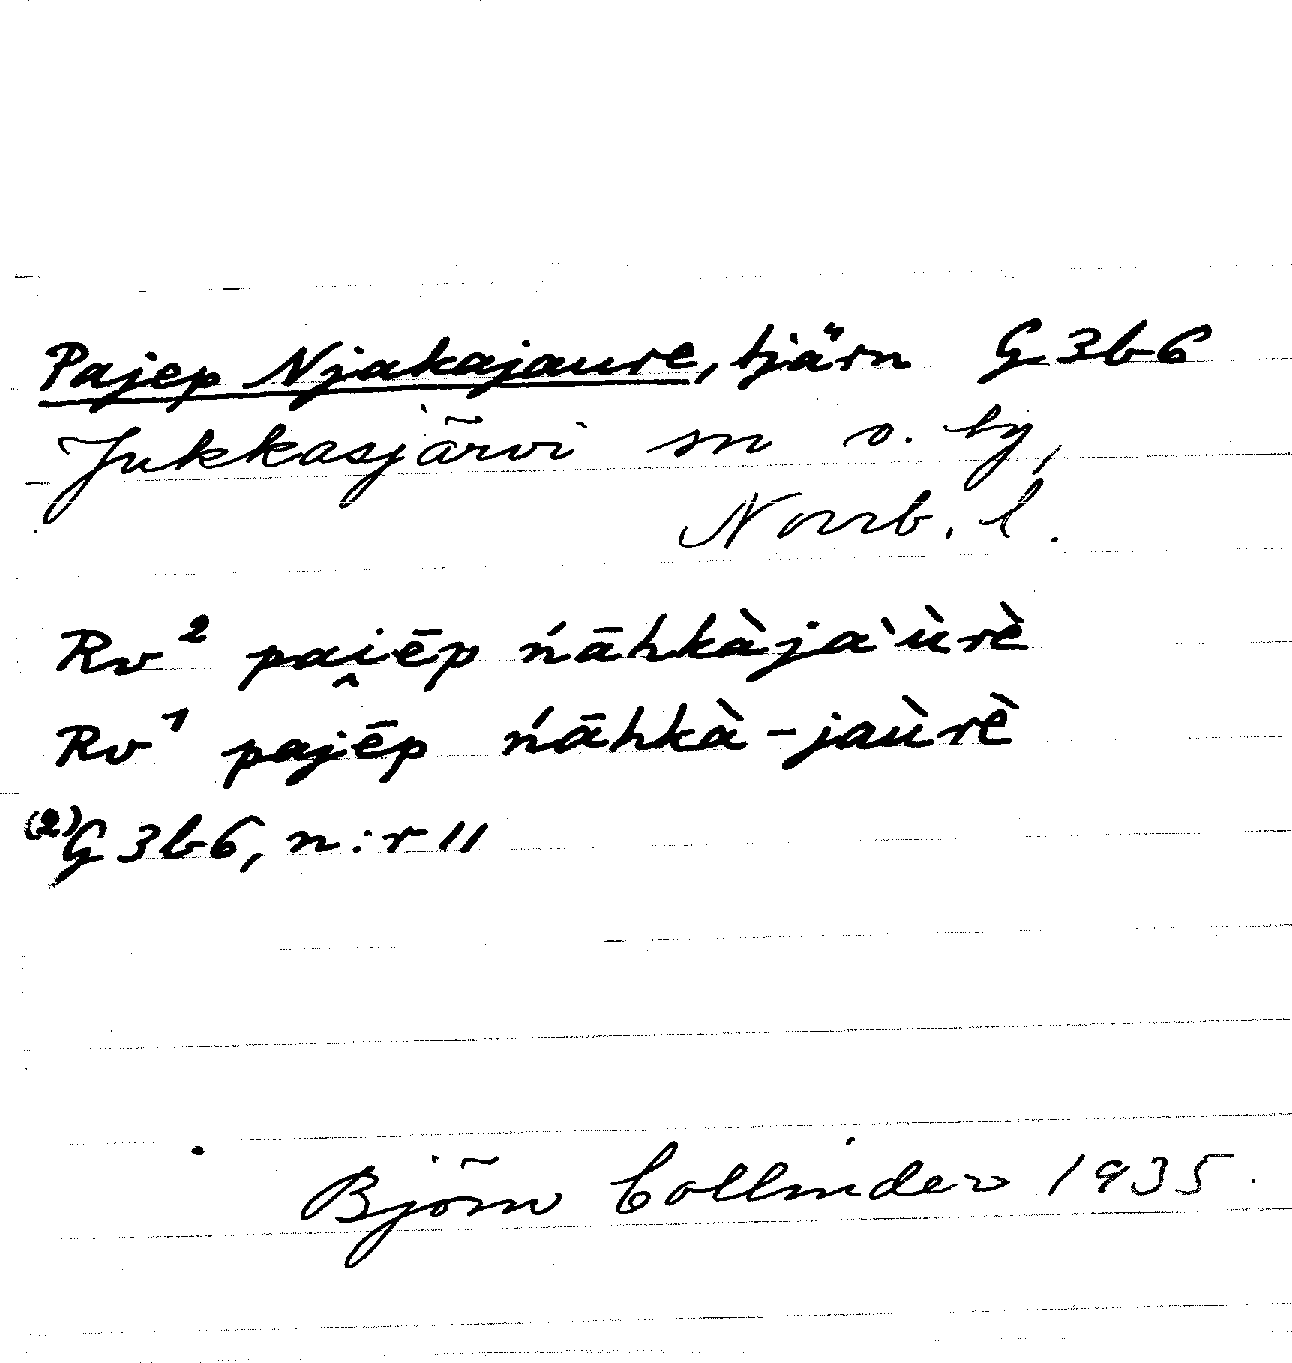 Pajep Njakajaure, tjärn G 3b6
Jukkasjärvi sn o. by,
Norrb. l.
Rv² pai̯ēp ńāhkàja`ùrè
Rv¹ pajēp ńāhkà-jaùrè
(2) G 3b6, n:r 11
Björn Collinder 1935.